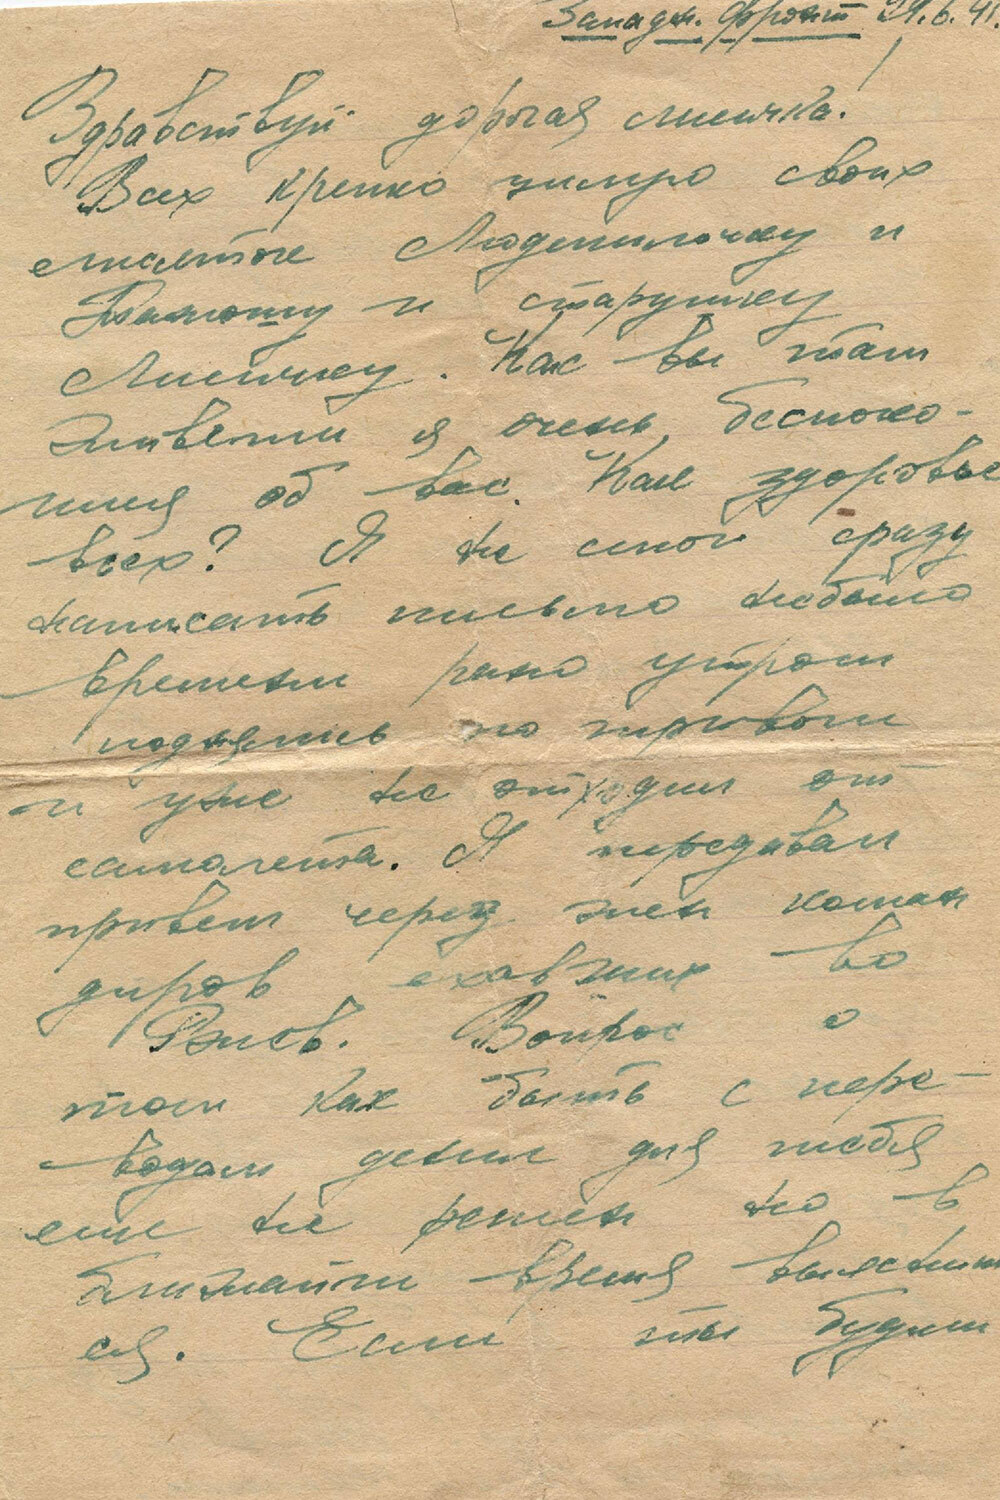 Западн. Фронт 29.6.41.
Здравствуй дорогая лисичка!
Всех крепко цилую своих
малюток Людмилочку и
и старушку
Лисичку. Как вы там
живети я очень беспоко-
июся об вас. Как здоровье
всех? Я не смог сразу
написать письмо небыло
времени рано утром
поднялись по тривоги
и уже не отходим от
самолета. Я передавал
привет через жен коман
диров ехавших во
Ржев. Вопрос о
том как быть с пере-
водом денег для тебя
еще не решен но в
ближайши время выяснит
ся. Если ты будиш